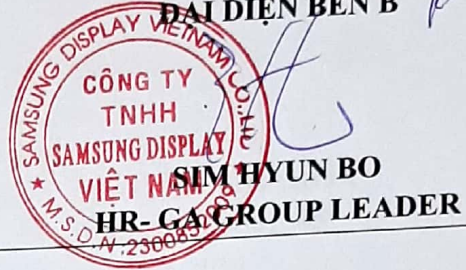 ĐẠI DIỆN BÊN B
SAMSUNG DISPLAY VIETNAM CO.,LTD
CÔNG TY
TNHH
SAMSUNG DISPLAY
VIỆT NAM
SIM HYUN BO
HR- GA GROUP LEADER